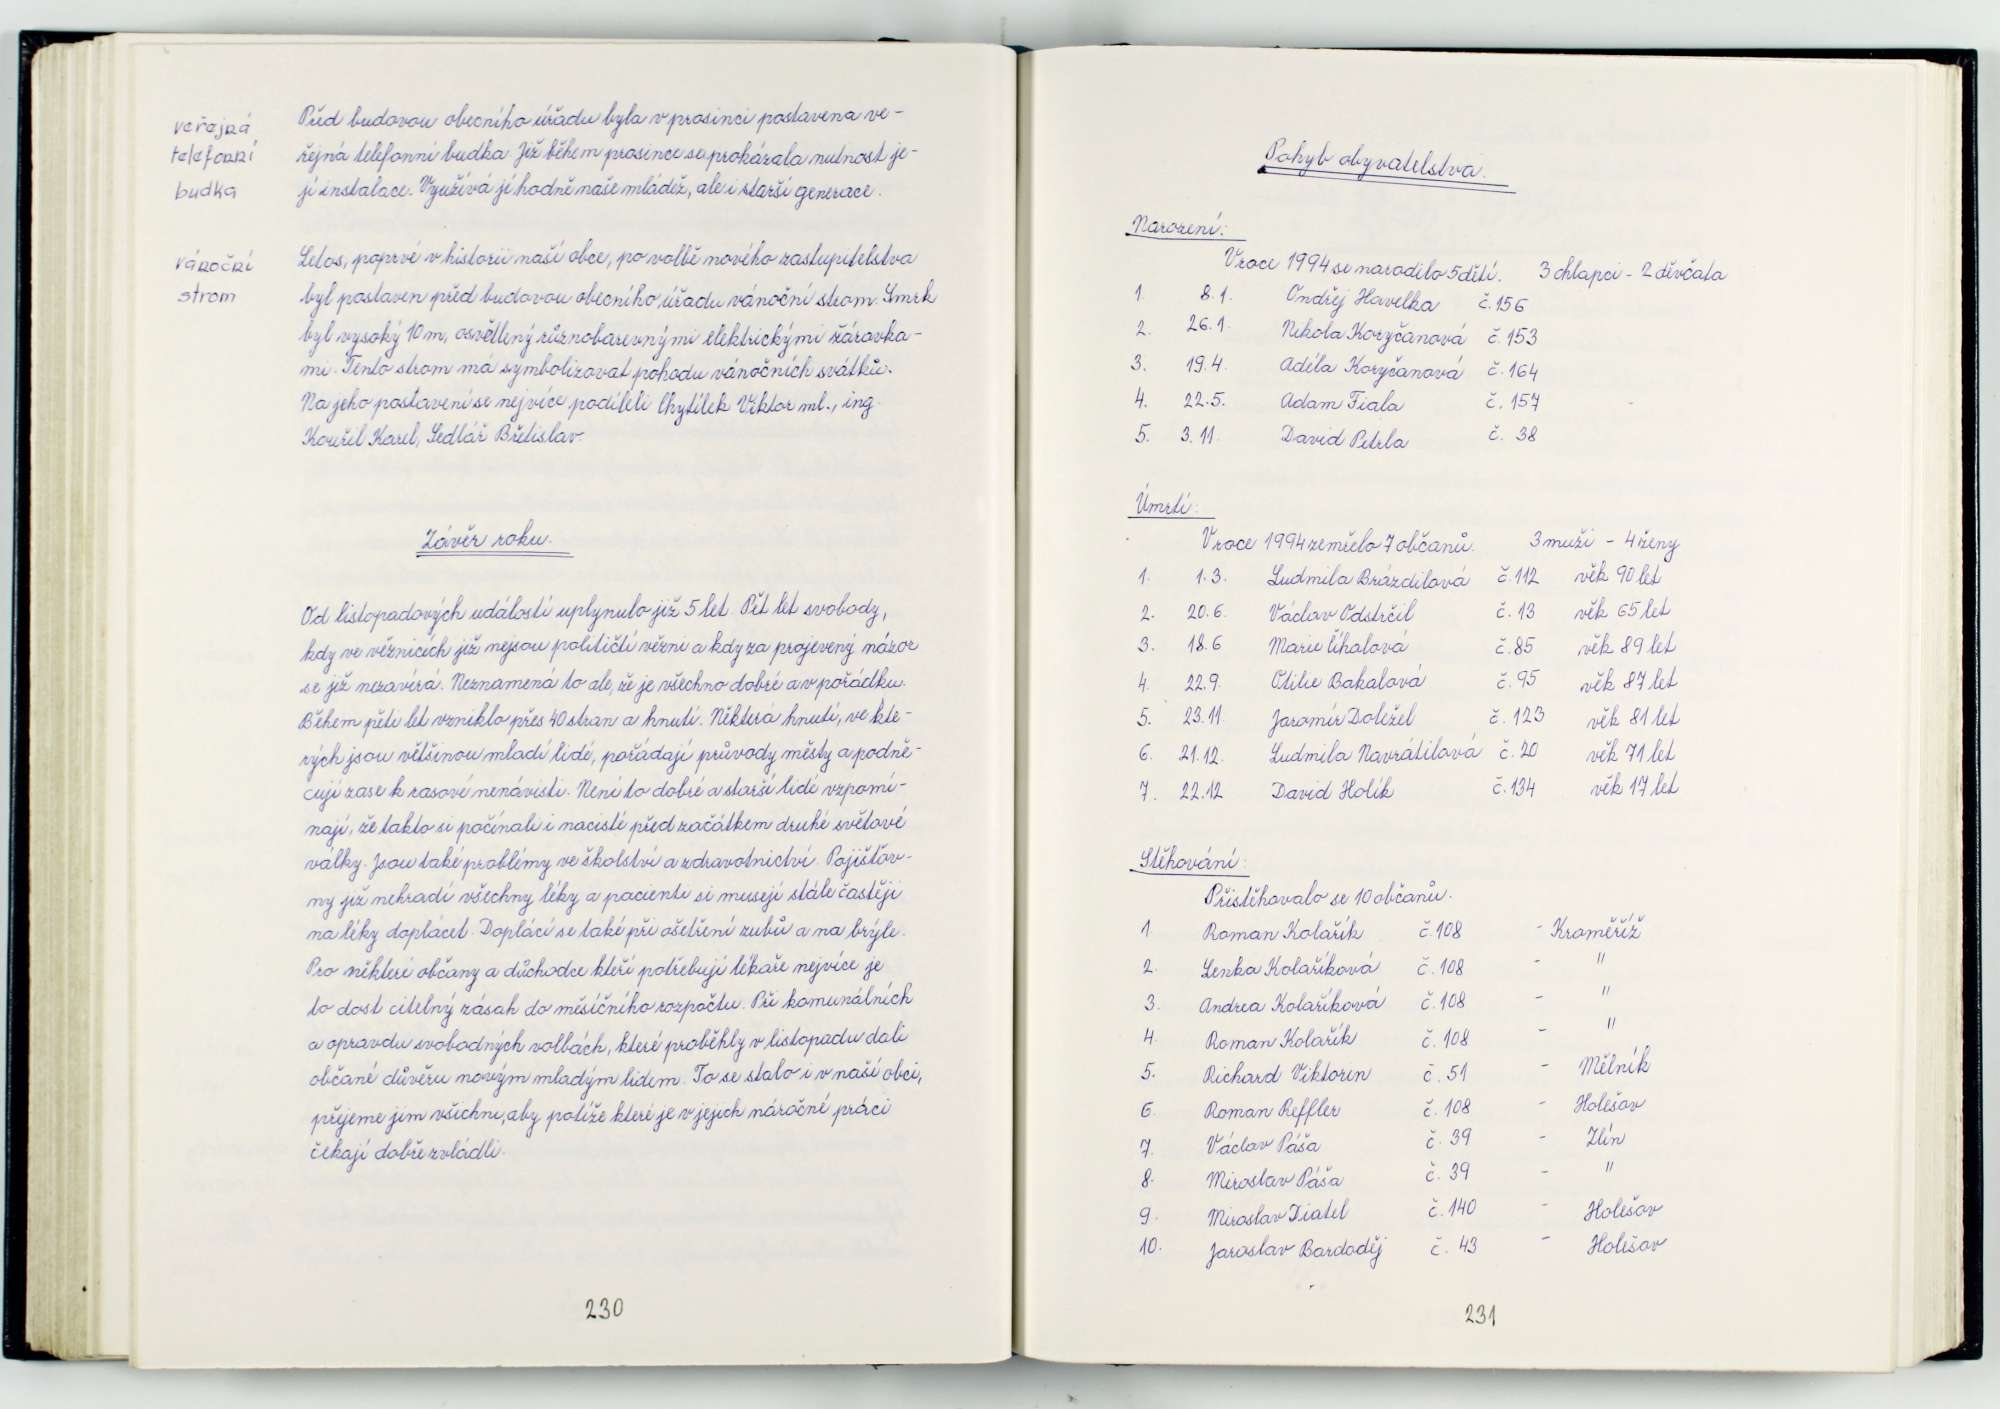 veřejná
telefonní
budka
Před budovou obecního úřadu byla v prosinci postavena ve-
řejná telefonní budka. Již během prosince se prokázala nutnost je-
jí instalace. Využívá jí hodně naše mládež, ale i starší generace.
vánoční
strom
Letos, poprvé v historii naší obce, po volbě nového zastupitelstva
byl postaven před budovou obecního úřadu vánoční strom. Smrk
byl vysoký 10 m, osvětlený různobarevnými elektrickými žárovka-
mi. Tento strom má symbolizovat pohodu vánočních svátků.
Na jeho postavení se nejvíce podíleli Chytílek Viktor ml., ing.
Kouřil Karel, Sedlář Břetislav.
Závěr roku.
Od listopadových událostí uplynulo již 5 let. Pět let svobody,
kdy ve věznicích již nejsou političtí vězni a kdy za projevený názor
se již nezavírá. Neznamená to ale, že je všechno dobré a v pořádku.
Během pěti let vzniklo přes 40 stran a hnutí. Některá hnutí, ve kte-
rých jsou většinou mladí lidé, pořádají průvody městy a podně-
cují zase k rasové nenávisti. Není to dobré a starší lidé vzpomí-
nají, že takto si počínali i nacisté před začátkem druhé světové
války. Jsou také problémy ve školství a zdravotnictví. Pojišťov-
ny již nehradí všechny léky a pacienti si musejí stále častěji
na léky doplácet. Doplácí se také při ošetření zubů a na brýle.
Pro některé občany a důchodce kteří potřebují lékaře nejvíce je
to dost citelný zásah do měsíčního rozpočtu. Při komunálních
a opravdu svobodných volbách, které proběhly v listopadu dali
občané důvěru novým mladým lidem. To se stalo i v naší obci,
přejeme jim všichni, aby potíže které je v jejich náročné práci
čekají dobře zvládli.
230
Pohyb obyvatelstva.
Narození:
V roce 1994 se narodilo 5 dětí. 3 chlapci - 2 děvčata
1. 8.1. Ondřej Havelka č. 156
2. 26.1. Nikola Koryčanová č. 153
3. 19.4. Adéla Koryčanová č. 164
4. 22.5. Adam Fiala č. 157
5. 3.11. David Petrla č. 38
Úmrtí:
V roce 1994 zemřelo 7 občanů. 3 muži - 4 ženy
1. 1.3. Ludmila Brázdilová č. 112 věk 90 let
2. 20.6. Václav Odstrčil č. 13 věk 65 let
3. 18.6 Marie Číhalová č. 85 věk 89 let
4. 22.9. Otilie Bakalová č. 95 věk 87 let
5. 23.11 Jaromír Doležel č. 123 věk 81 let
6. 21.12. Ludmila Navrátilová č. 20 věk 71 let
7. 22.12 David Holík č. 134 věk 17 let
Stěhování:
Přistěhovalo se 10 občanů.
1. Roman Kolařík č. 108 - Kroměříž
2. Lenka Kolaříková č. 108 - "
3. Andrea Kolaříková č. 108 - "
4. Roman Kolařík č. 108 - "
5. Richard Viktoren č. 51 - Mělník
6. Roman Reffler č. 108 - Holešov
7. Václav Páša č. 39 - Zlín
8. Miroslav Páša č. 39 - "
9. Miroslav Diatel č. 140 - Holešov
10. Jaroslav Bardoděj č. 43 - Holešov
231